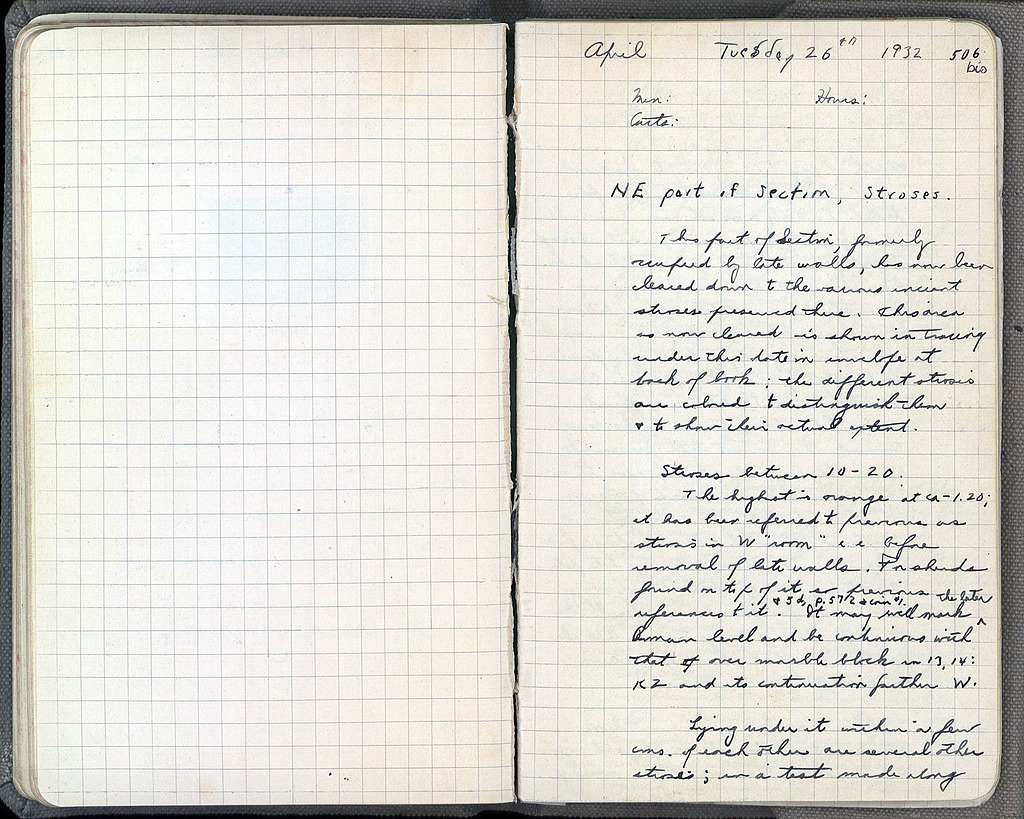 April Tuesday 26th 1932 506 bis
Men: Hours:
Carts:
NE part of Section, Stroses.
This part of Section, formerly
occupied by late walls, has now been
cleared down to the various ancient
stroses preserved there. This area
as now cleared is shown in tracing
under this date in envelope at
back of book; the different strosis
are colored to distinguish them
& to show their actual extent.
Stroses between 10-20.
The highest is orange at ca -1.20;
it has been referred to previous as
strosis in W "room" i.e. before
removal of late walls. For sherds
found on top of it, see previous
references to it. & 3d, p. 572 & coin #1. It may well mark the later
Roman level and be continuous with
that of over marble block in 13, 14:
K2 and its continuation farther W.
Lying under it within a few
cms. of each other are several other
strosis; in a test made along